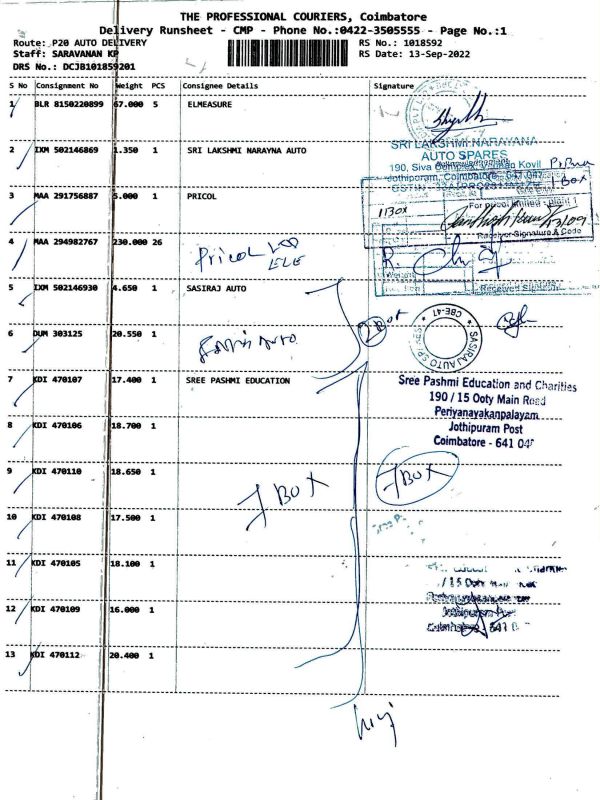 THE PROFESSIONAL COURIERS, Coimbatore
Delivery Runsheet - CMP - Phone No.:0422-3505555 - Page No.:1
Route: P20 AUTO DELIVERY
RS No.: 1018592
Staff: SARAVANAN KP
RS Date: 13-Sep-2022
DRS No.: DCJB101859201
S No Consignment No Weight PCS Consignee Details Signature
1 BLR 8150220899 67.000 5 ELMEASURE
2 IXM 502146869 1.350 1 SRI LAKSHMI NARAYNA AUTO
SRI LAKSHMI NARAYANA
AUTO SPARES
190, Siva Complex, Kovil
Jothipuram, Coimbatore, 641 047
1 Box
3 MAA 291756887 5.000 1 PRICOL
11 Box
For pricol limited - plant 1
Receiver Signature & Code
4 MAA 294982767 230.000 26
Pricol
ELE
Received Signature
5 IXM 502146930 4.650 1 SASIRAJ AUTO
CBE-47
SASIRAJ AUTO SPARES
6 DUM 303125 20.550 1
Auto
7 KDI 470107 17.400 1 SREE PASHMI EDUCATION
Sree Pashmi Education and Charities
190 / 15 Ooty Main Road
Periyanayakanpalayam
Jothipuram Post
Coimbatore - 641 047
8 KDI 470106 18.700 1
9 KDI 470110 18.650 1
7 Box
7 Box
10 KDI 470108 17.500 1
11 KDI 470105 18.100 1
/ 15 Ooty
12 KDI 470109 16.000 1
13 KDI 470112 20.400 1